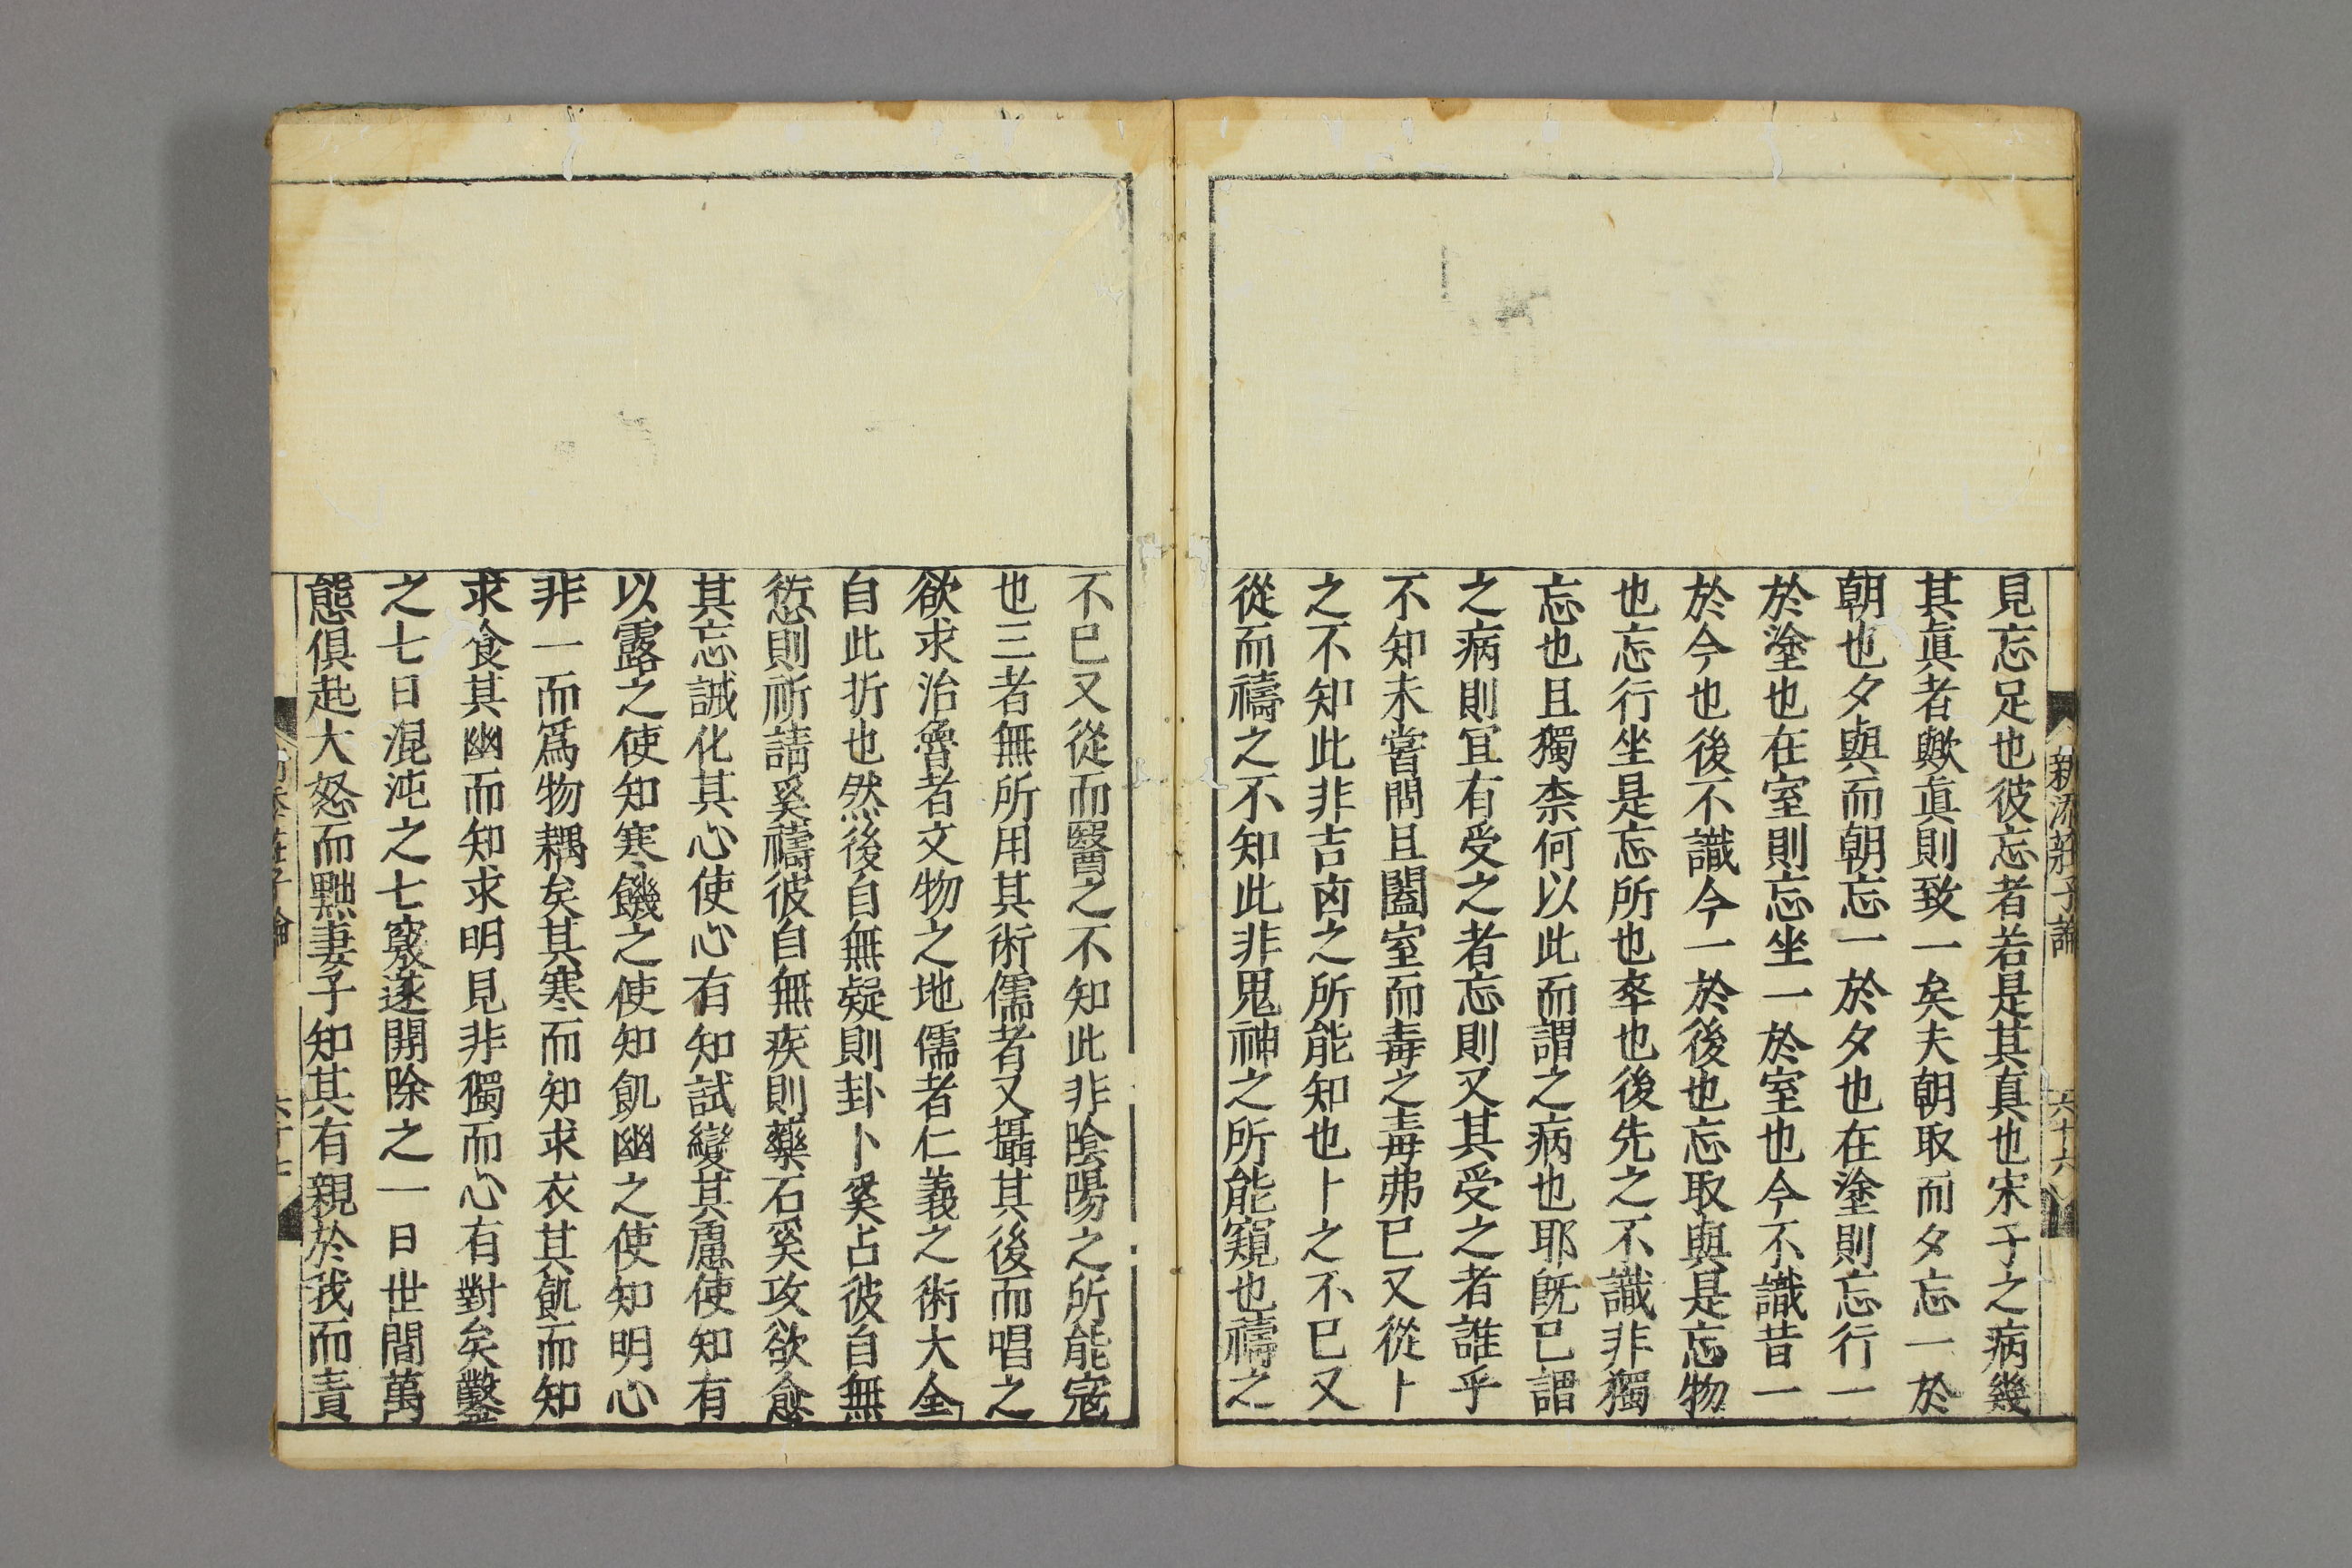 新添莊子論
六十六
見忘足也彼忘者若是其真也宋子之病幾
其眞者歟眞則致一矣夫朝取而夕忘一於
朝也夕與而朝忘一於夕也在塗則忘行一
於塗也在室則忘坐一於室也今不識昔一
於今也後不識今一於後也忘取與是忘物
也忘行坐是忘所也卒也後先之不識非獨
忘也且獨柰何以此而謂之病也耶旣已謂
之病則冝有受之者忘則又其受之者誰乎
不知未嘗問且闔室而毒之毒弗已又從卜
之不知此非吉凶之所能知也卜之不已又
從而禱之不知此非鬼神之所能窺也禱之
不已又從而醫之不知此非陰陽之所能寇
也三者無所用其術儒者又攝其後而唱之
欲求治魯者文物之地儒者仁義之術大全
自此折也然後自無疑則卦卜奚占彼自無
愆則祈請奚禱彼自無疾則藥石奚攻欲愈
其忘誠化其心使心有知試變其慮使知有
以露之使知寒饑之使知飢幽之使知明心
非一而爲物耦矣其寒而知求衣其飢而知
求食其幽而知求明見非獨而心有對矣鑿
之七日混沌之七竅遂開除之一日世間萬
態俱起大怒而黜妻子知其有親於我而責